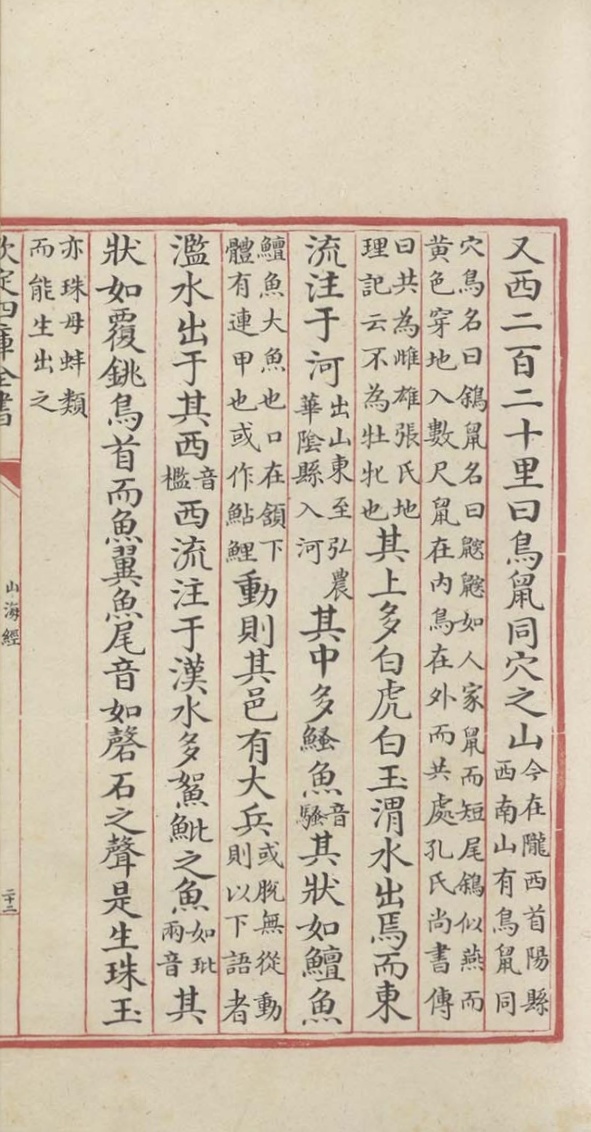 又西二百二十里曰鳥鼠同穴之山今在隴西首陽縣西南山有鳥鼠同
穴鳥名曰鵌鼠名曰鼵鼵如人家鼠而短尾鵌似燕而黄色穿地入數尺鼠在内鳥在外而共處孔氏尚書傳
曰共為雌雄張氏地理記云不為牡牝也其上多白虎白玉渭水出焉而東
流注于河出山東至弘農華陰縣入河其中多鰠魚音騷其狀如鱣魚
鱣魚大魚也口在頷下體有連甲也或作鮎鯉動則其邑有大兵或脫無從動則以下語者
濫水出于其西音檻西流注于漢水多鴽魮之魚如玭兩音其
狀如覆銚鳥首而魚翼魚尾音如磬石之聲是生珠玉
亦珠母蚌類而能生出之
欽定四庫全書
山海經
二十二